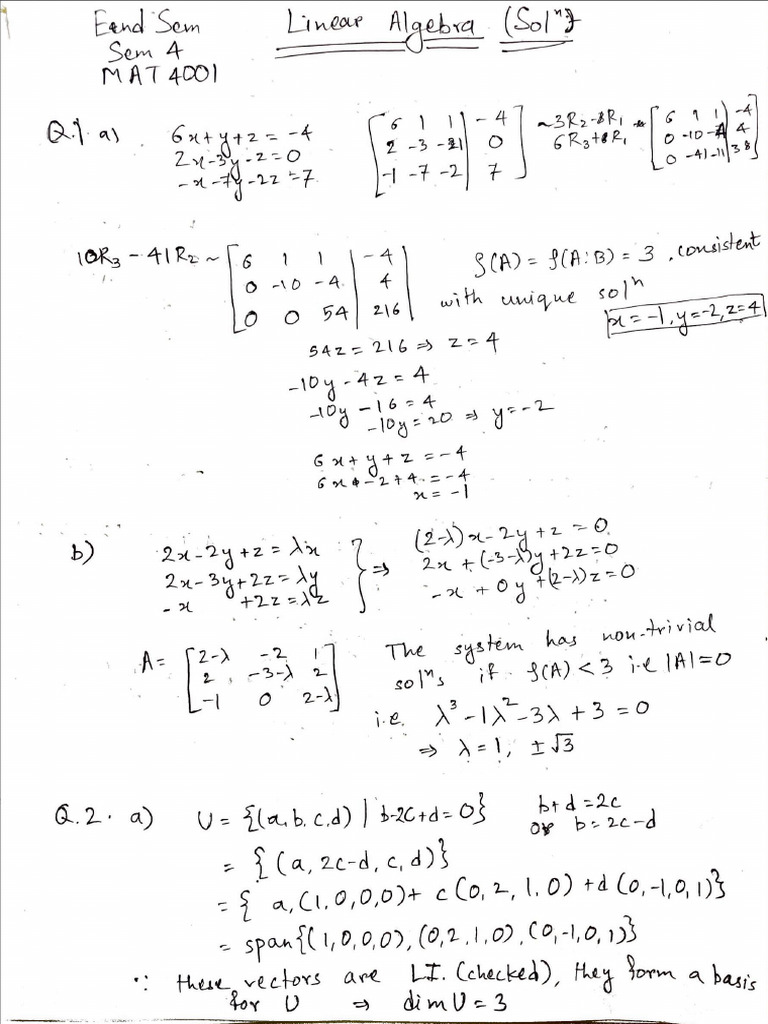 Eend Sem Linear Algebra (Solⁿ)
Sem 4
MAT 4001
Q.1. a) 6x+y+z = -4
2x-3y-z=0
-x-7y-2z=7
[6 1 1 | -4
2 -3 -1 | 0
-1 -7 -2 | 7]
~3R₂-R₁
6R₃+R₁
[6 1 1 | -4
0 -10 -4 | 4
0 -41 -11 | 38]
10R₃ - 41R₂ ~ [6 1 1 | -4
0 -10 -4 | 4
0 0 54 | 216]
ρ(A) = ρ(A:B) = 3, consistent
with unique solⁿ
x=-1, y=-2, z=4
54z = 216 ⇒ z = 4
-10y - 4z = 4
-10y - 16 = 4
-10y = 20 ⇒ y = -2
6x + y + z = -4
6x - 2 + 4 = -4
x = -1
b) 2x-2y+z = λx
2x-3y+2z = λy
-x +2z = λz
} ⇒ (2-λ)x-2y+z = 0
2x+(-3-λ)y+2z=0
-x + 0y +(2-λ)z=0
A = [2-λ -2 1
2 -3-λ 2
-1 0 2-λ]
The system has non-trivial
solⁿs if ρ(A) < 3 i.e |A|=0
i.e. λ³ - 1λ² - 3λ + 3 = 0
⇒ λ = 1, ±√3
Q.2. a) U = {(a,b,c,d) | b-2c+d=0} b+d=2c
or b=2c-d
= {(a, 2c-d, c, d)}
= { a,(1,0,0,0)+ c(0,2,1,0) +d(0,-1,0,1)}
= span{(1,0,0,0), (0,2,1,0), (0,-1,0,1)}
∵ these vectors are LI. (checked), they form a basis
for U ⇒ dim U = 3